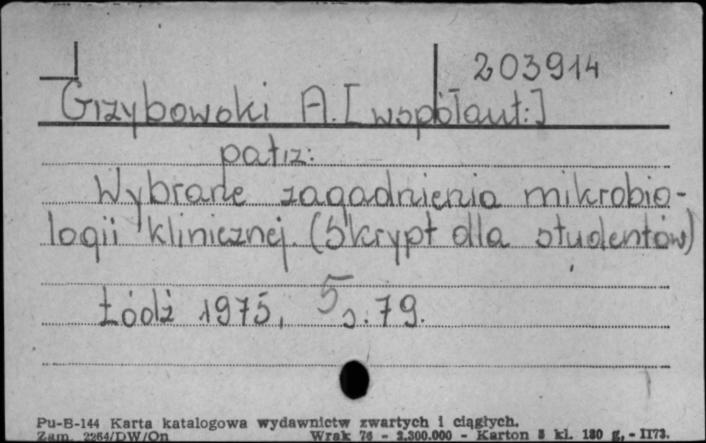 203914
Grzybowski A. [współaut:]
patrz:
Wybrane zagadnienia mikrobio-
logii klinicznej. (Skrypt dla studentów)
Łódź 1975, s. 79.
Pu-B-144 Karta katalogowa wydawnictw zwartych i ciągłych.
Zam. 2264/DW/On Wrak 76 - 2.300.000 - Karton 3 kl. 180 g. - II73.